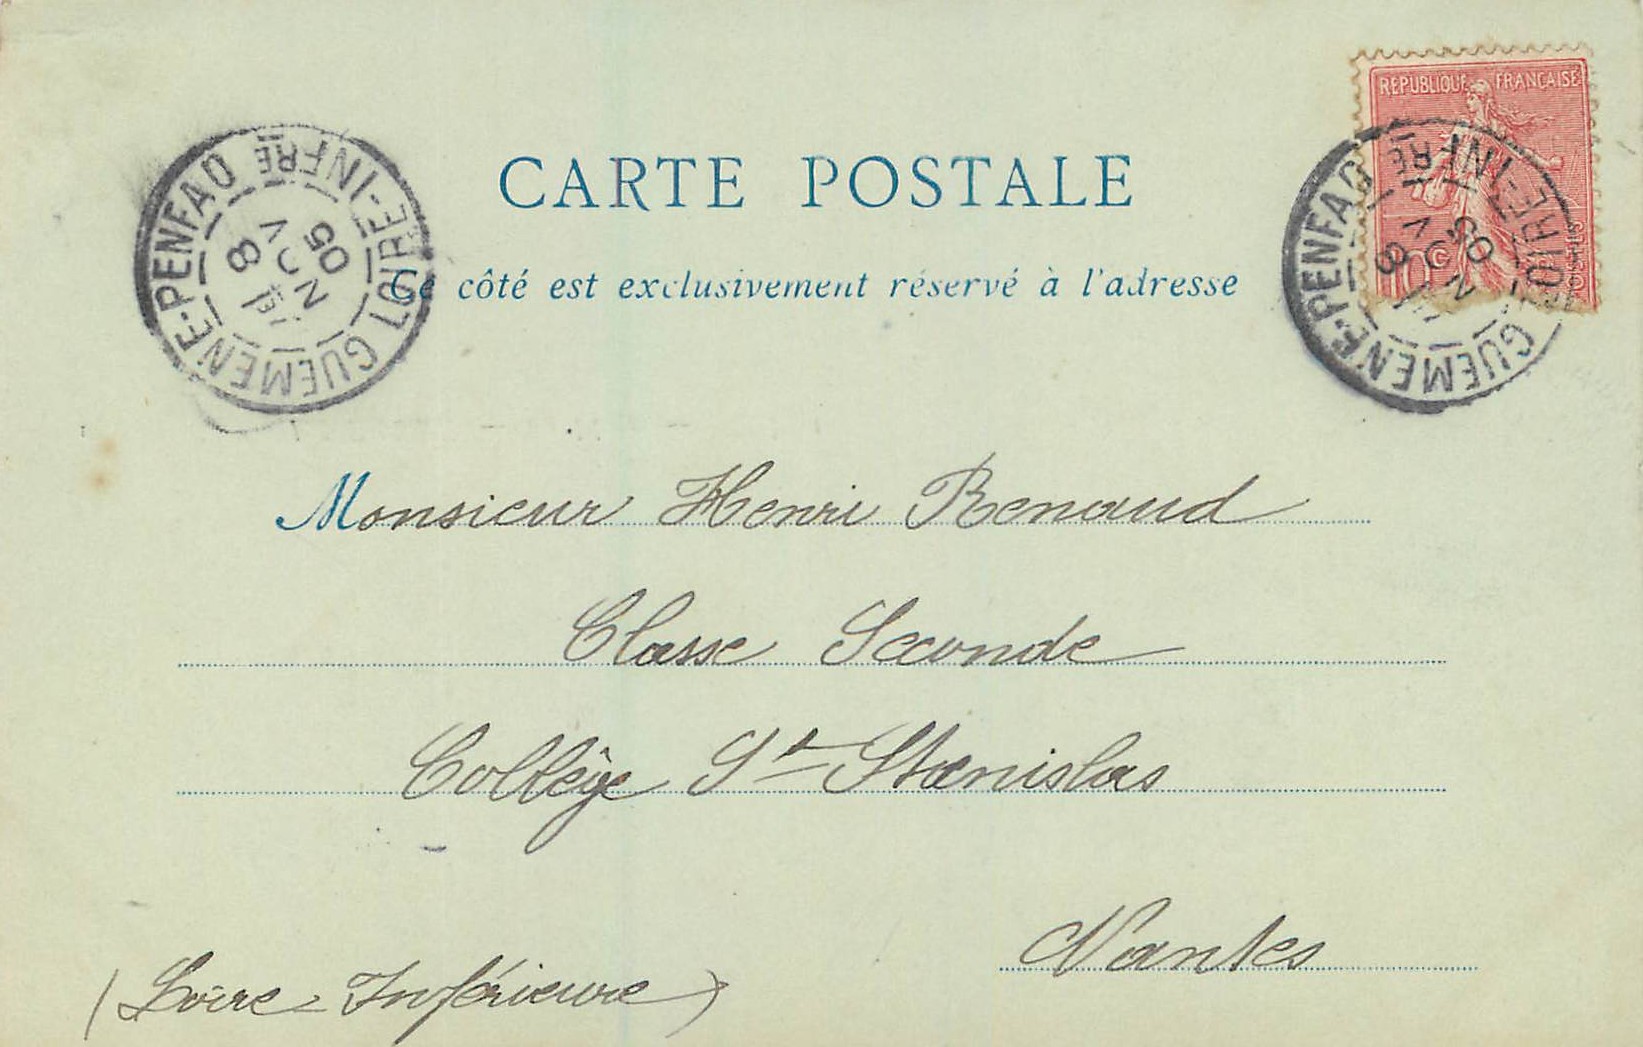 REPUBLIQUE FRANÇAISE
10 C
POSTES
GUEMENE-PENFAO
LOIRE-INFRE
8
NOV
05
GUEMENE-PENFAO
LOIRE-INFRE
8
NOV
05
CARTE POSTALE
Ce côté est exclusivement réservé à l'adresse
Monsieur Henri Renaud
Classe Seconde
Collège St Stanislas
Nantes
(Loire-Inférieure)